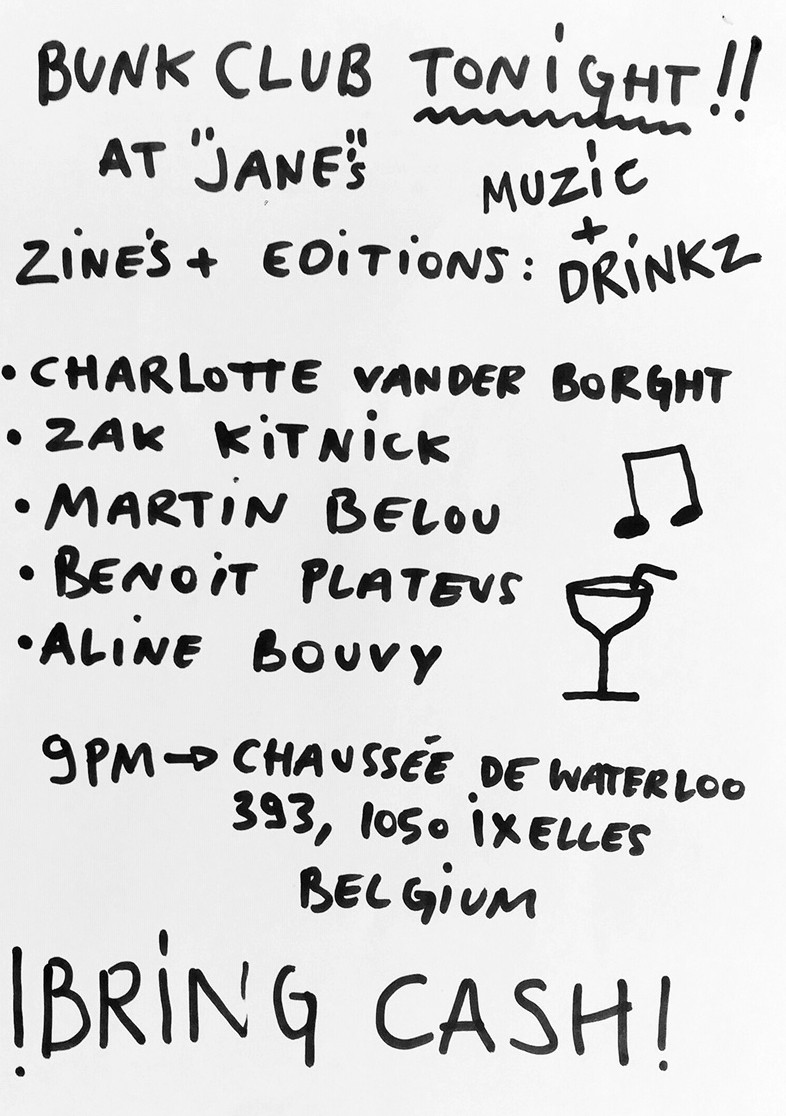 BUNK CLUB TONiGHT!!
AT "JANE's"
MUZiC
+
DRiNKZ
ZiNE'S + EDiTiONS:
• CHARLOTTE VANDER BORGHT
• ZAK KiTNiCK
• MARTiN BELOU
• BENOiT PLATEUS
• ALiNE BOUVY
9PM → CHAUSSÉE DE WATERLOO
393, 1050 iXELLES
BELGiUM
!BRiNG CASH!